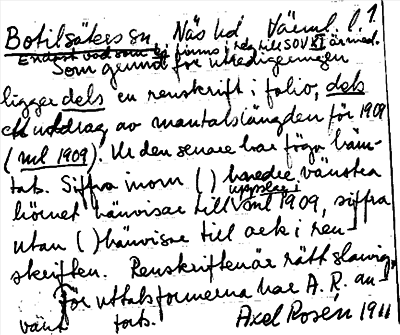 Botilsäkers sn, Näs hd Värml. l. 1.
Endast vad som ej finns i reg. till SOV XI är med.
Som grund för utredigeringen
ligger dels en renskrift i folio, dels
ett utdrag av mantalslängden för 1909
(ml 1909). Ur den senare har föga häm-
tats. Siffra inom ( ) nedre vänstra
hörnet hänvisar till uppslag i ml 1909, siffra
utan ( ) hänvisar till ark i ren-
skriften. Renskriften är rätt slarvig.
För uttalsformerna har A. R. an-
vänt  tats. Axel Rosén 1911